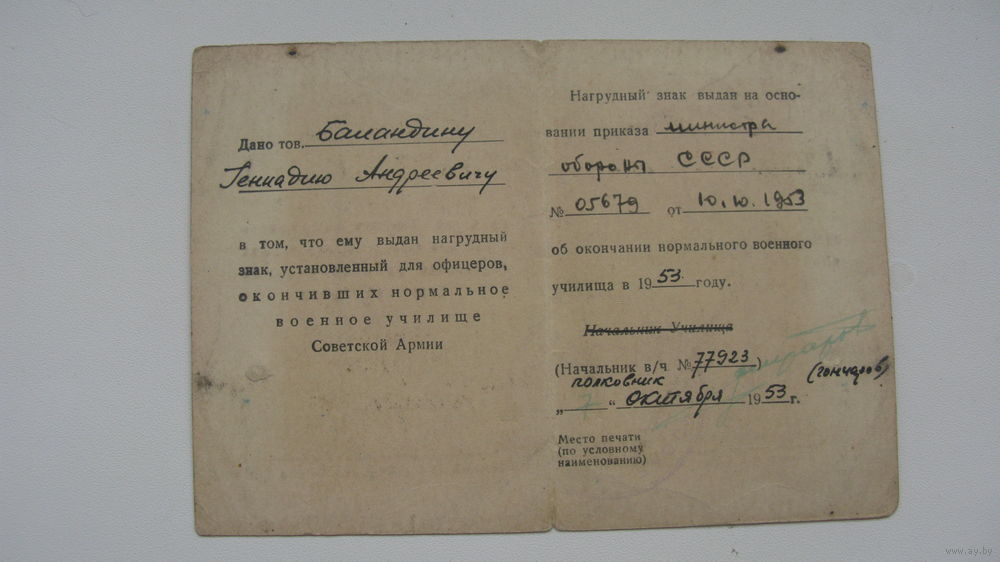 Дано тов. Баландину
Геннадию Андреевичу
в том, что ему выдан нагрудный
знак, установленный для офицеров,
окончивших нормальное
военное училище
Советской Армии
Нагрудный знак выдан на осно-
вании приказа министра
обороны СССР
№ 05679 от 10.10.1953
об окончании нормального военного
училища в 1953 году.
Начальник Училища
(Начальник в/ч № 77923)
полковник (гончаров)
„ “ октября 1953 г.
Место печати
(по условному
наименованию)
www.ay.by